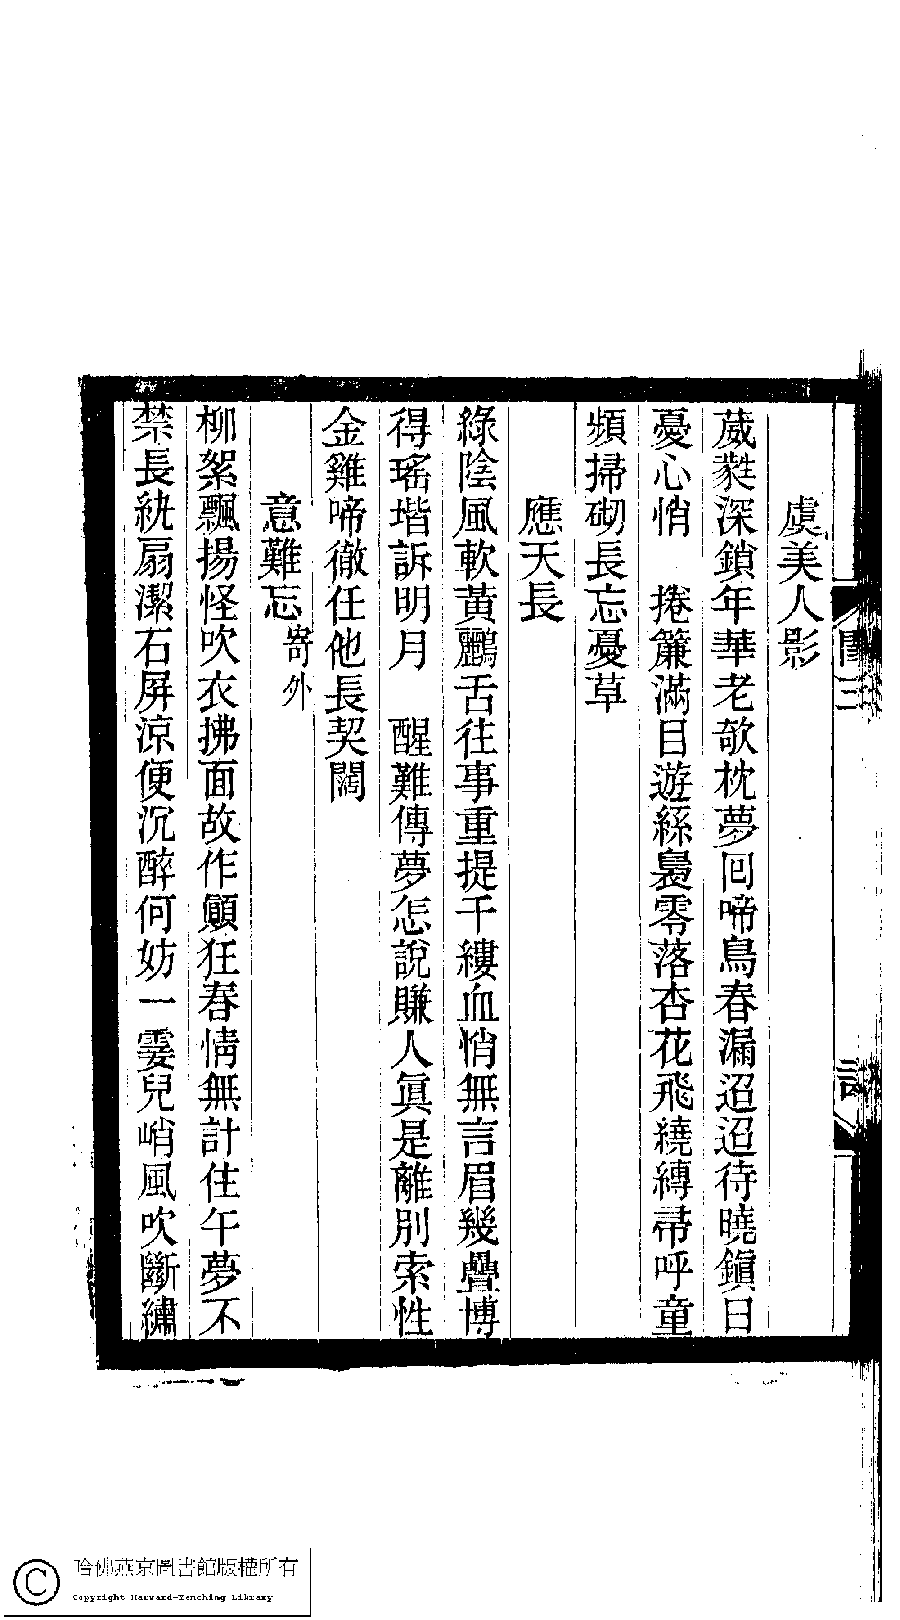 虞美人影
葳蕤深鎖年華老欹枕夢回啼鳥春漏迢迢待曉鎭日
憂心悄　捲簾滿目遊絲裊零落杏花飛繞縳帚呼童
頻掃砌長忘憂草
應天長
綠陰風軟黃鸝舌往事重提千縷血悄無言眉幾疊博
得瑤堦訴明月　醒難傳夢怎說賺人眞是離別索性
金雞啼徹任他長契闊
意難忘寄外
柳絮飄揚怪吹衣拂面故作顚狂春情無計住午夢不
禁長紈扇潔石屛涼便沉醉何妨一霎兒峭風吹斷繡
哈佛燕京圖書館版權所有
Copyright Harvard-Yenching Library